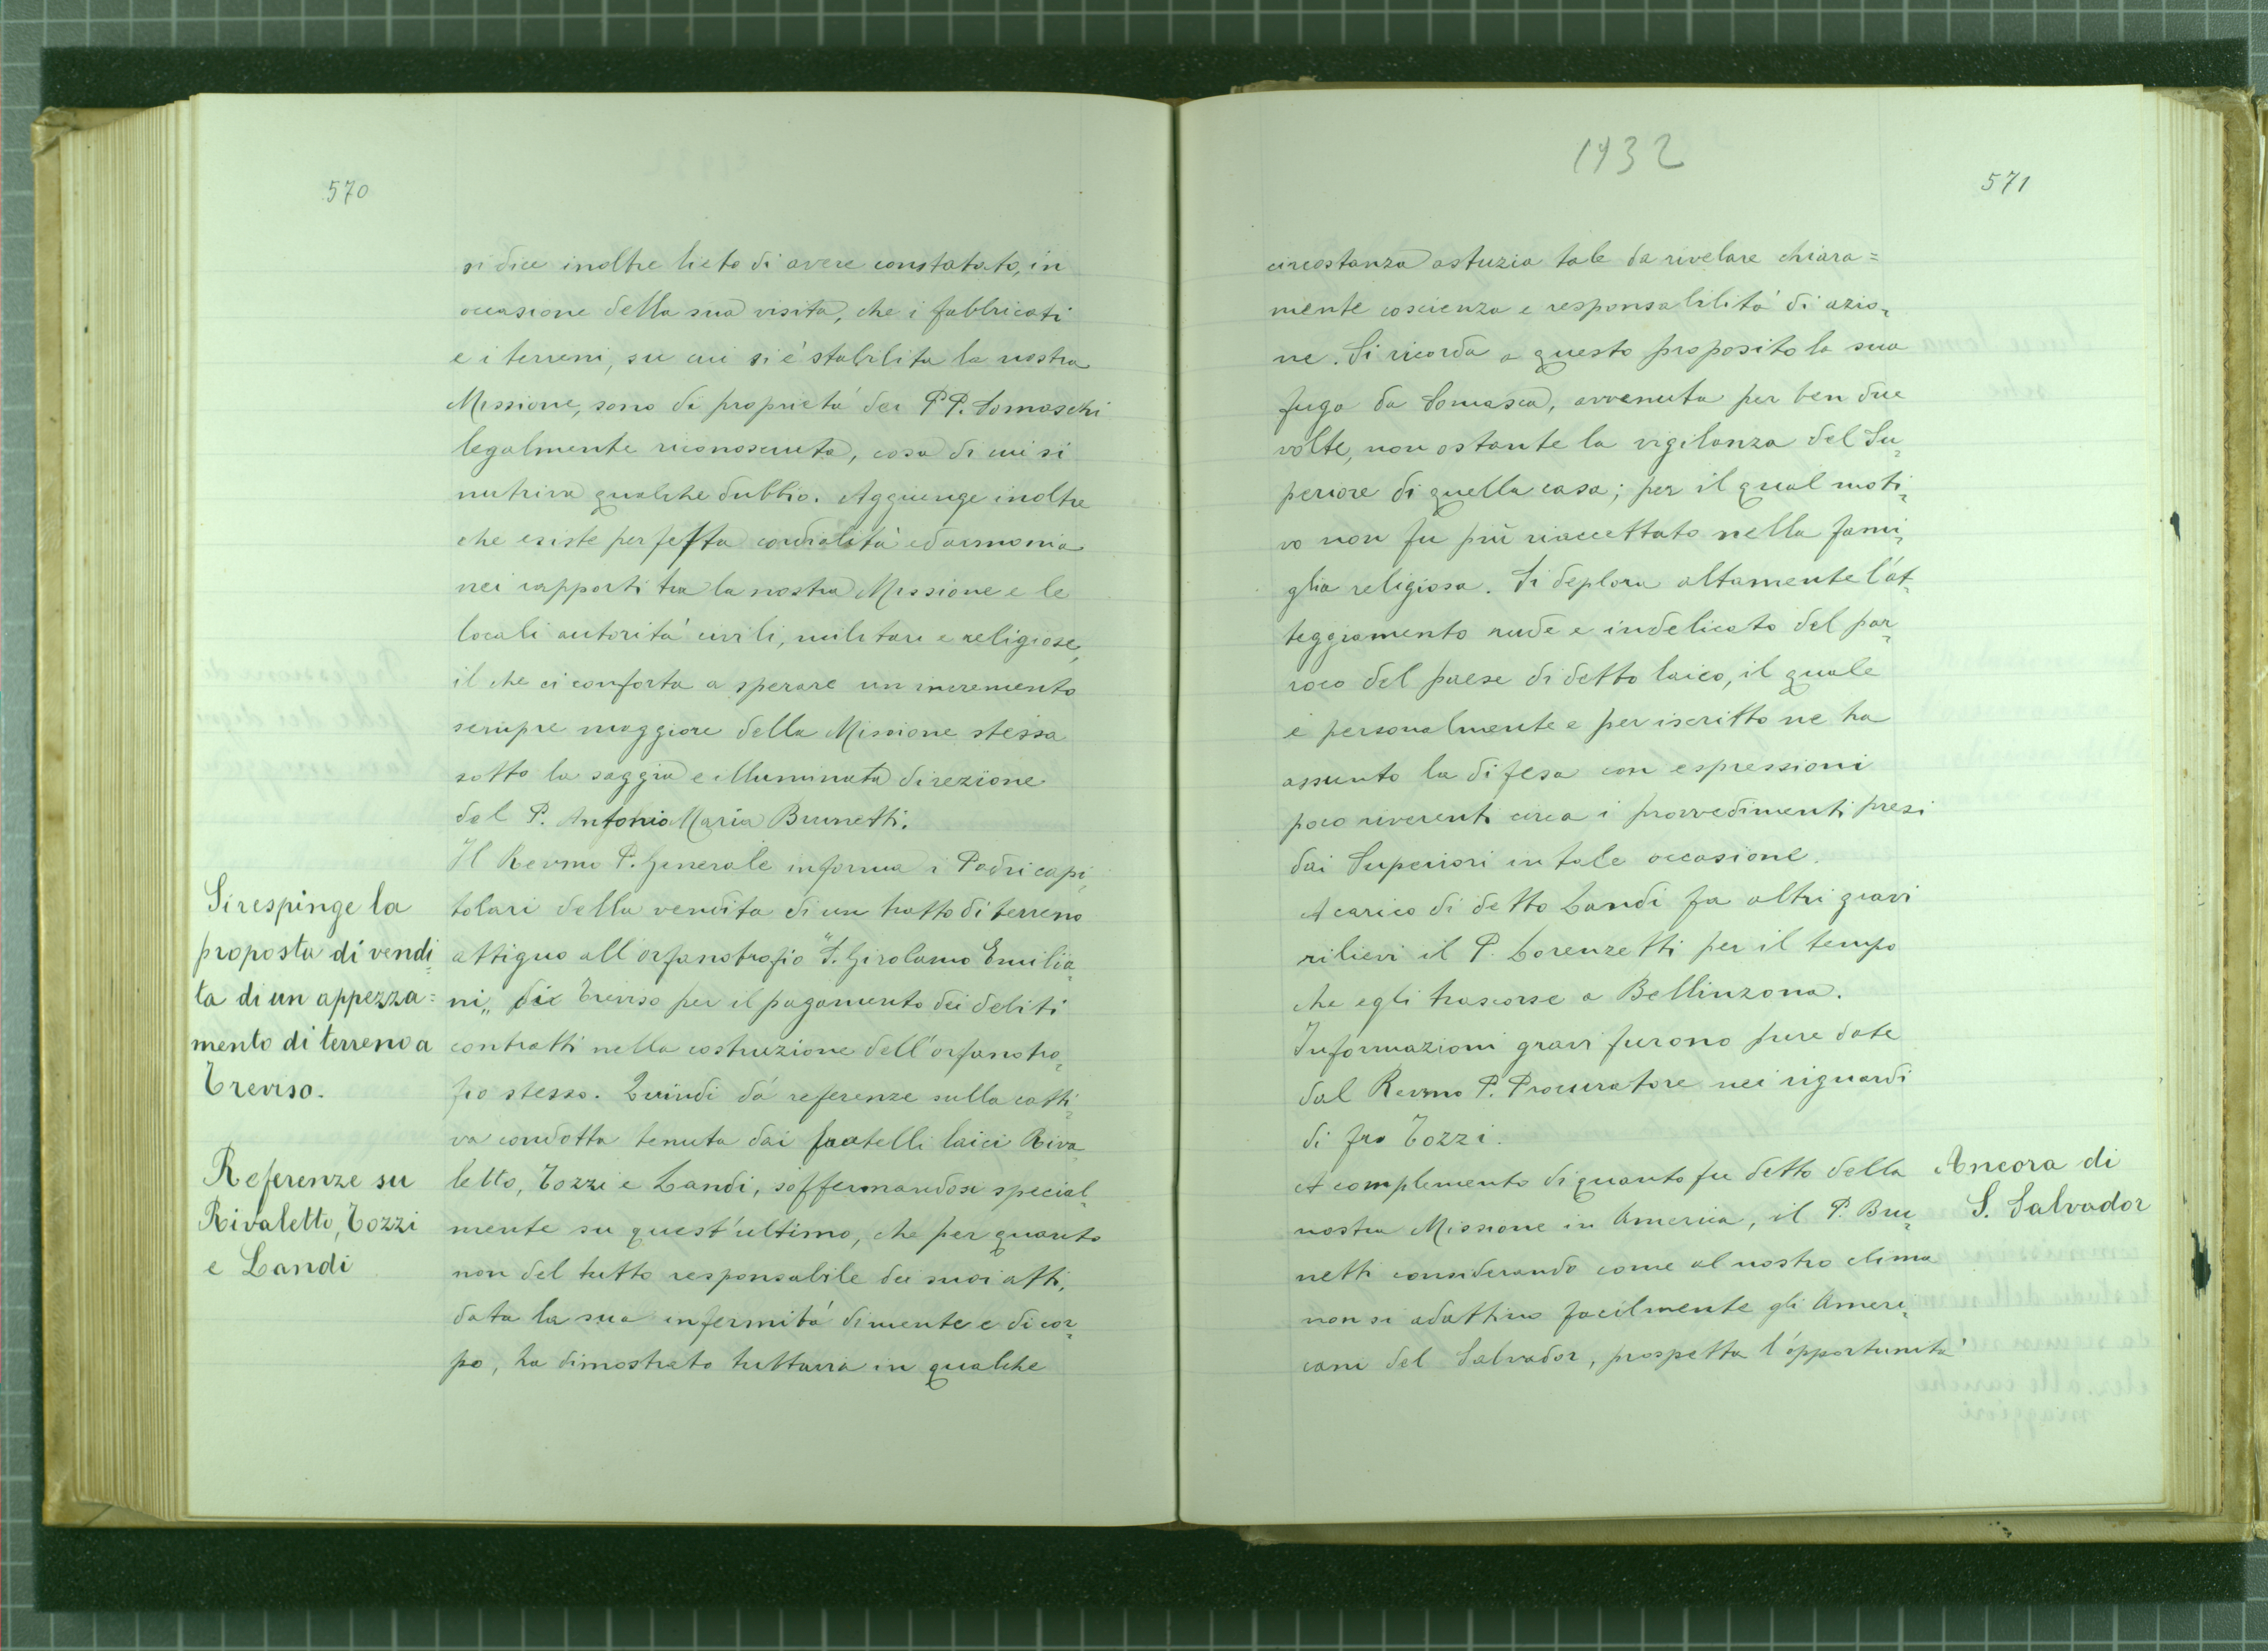 570
si dice inoltre lieto di avere constatato, in
occasione della sua visita, che i fabbricati
e i terreni, su cui si è stabilita la nostra
Missione, sono di proprietà dei PP. Somaschi
legalmente riconosciuta, cosa di cui si
nutriva qualche dubbio. Aggiunge inoltre
che esiste perfetta cordialità ed armonia
nei rapporti tra la nostra Missione e le
locali autorità civili, militari e religiose,
il che ci conforta a sperare un incremento
sempre maggiore della Missione stessa
sotto la saggia e illuminata direzione
del P. Antonio Maria Brunetti.
Il Revmo P. Generale informa i Padri capi,
tolari della vendita di un tratto di terreno
attiguo all'orfanotrofio "S. Girolamo Emilia,
ni„ di Treviso per il pagamento dei debiti
contratti nella costruzione dell'orfanotro,
fio stesso. Quindi dà referenze sulla catti,
va condotta tenuta dai fratelli laici Riva
letto, Tozzi e Landi, soffermandosi special,
mente su quest'ultimo, che per quanto
non del tutto responsabile dei suoi atti,
data la sua infermità di mente e di cor,
po, ha dimostrato tuttavia in qualche
Si respinge la
proposta di vendi,
ta di un appezza=
mento di terreno a
Treviso.
Referenze su
Rivaletto, Tozzi
e Landi
1932
571
circostanza astuzia tale da rivelare chiara=
mente coscienza e responsabilità di azio,
ne. Si ricorda a questo proposito la sua
fuga da Somasca, avvenuta per ben due
volte, non ostante la vigilanza del Su,
periore di quella casa; per il qual moti,
vo non fu più riaccettato nella fami,
glia religiosa. Si deplora altamente l'at,
teggiamento rude e indelicato del par,
roco del paese di detto laico, il quale
e personalmente e per iscritto ne ha
assunto la difesa con espressioni
poco riverenti circa i provvedimenti presi
dai Superiori in tale occasione.
A carico di detto Landi fa altri gravi
rilievi il P. Lorenzetti per il tempo
che egli trascorse a Bellinzona.
Informazioni gravi furono pure date
dal Revmo P. Procuratore nei riguardi
di fra Tozzi.
A complemento di quanto fu detto della
nostra Missione in America, il P. Bru,
netti considerando come al nostro clima
non si adattino facilmente gli Ameri,
cani del Salvador, prospetta l'opportunità
Ancora di
S. Salvador